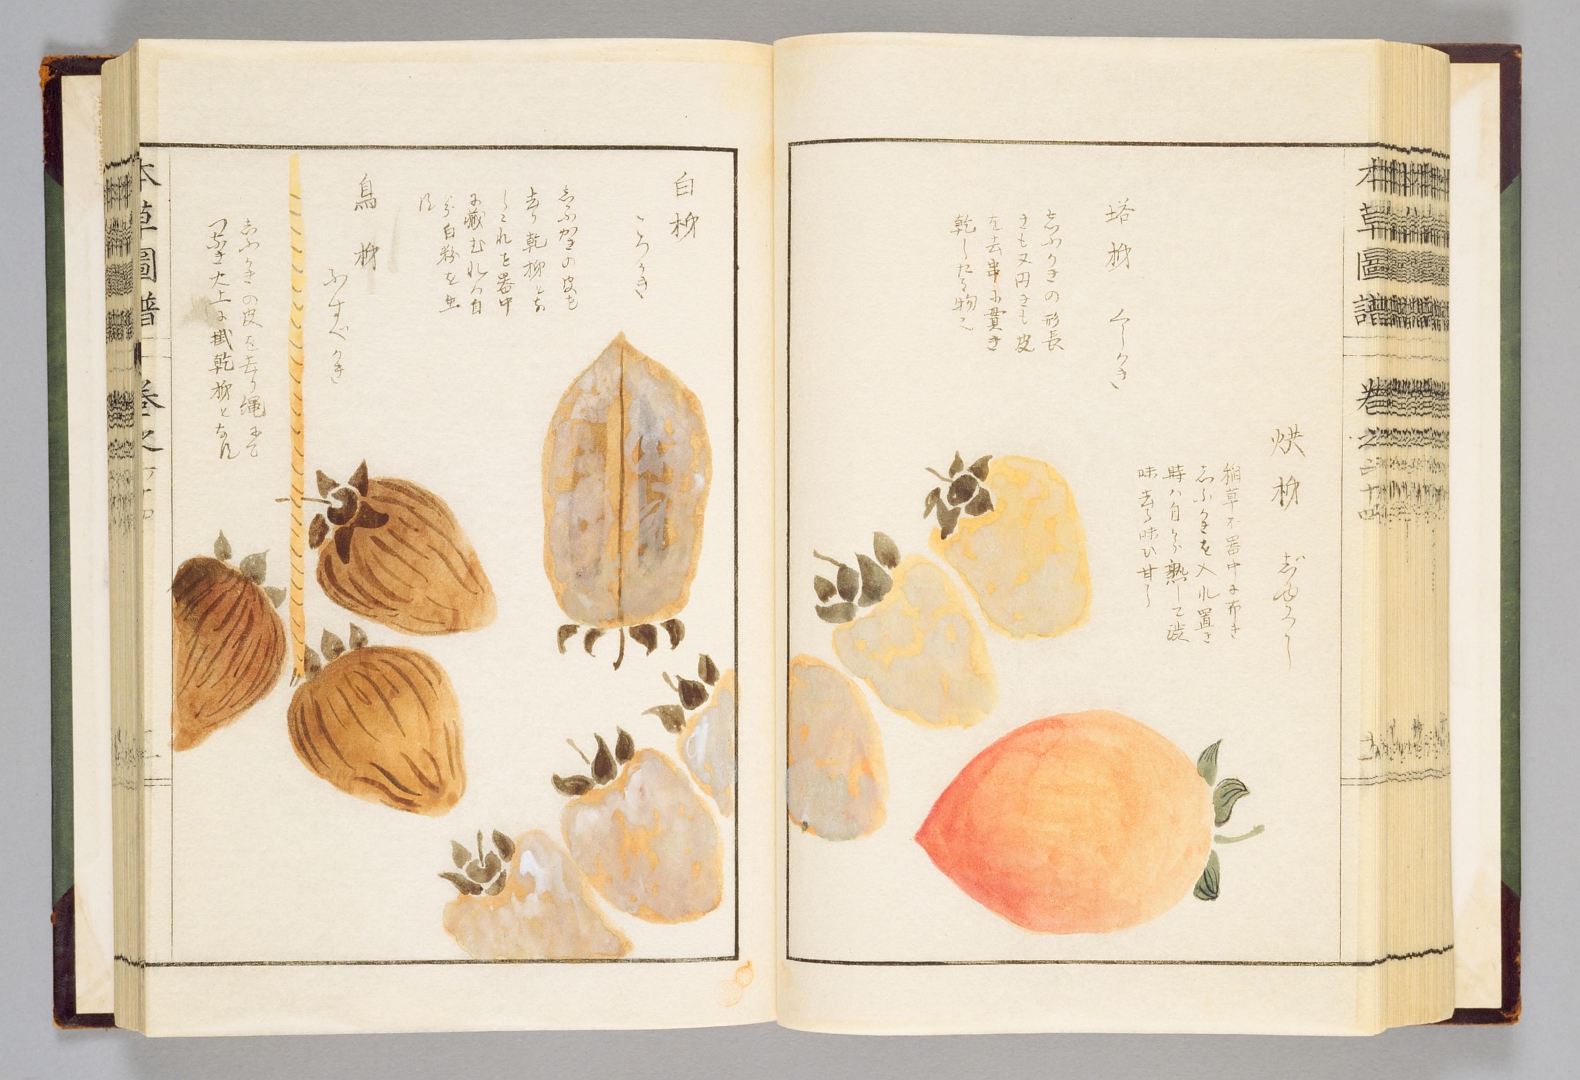 本草圖譜 卷之六十四
烘柹 じゆくし
稲草を器中に布き
しぶかきを入れ置き
時ハ自ら熟して渋
味去る味ひ甘し
塔柹 くしかき
しぶかきの形長
きも又円きも皮
を去串に貫き
乾したる物也
白柹 ころかき
しぶかきの皮を
去り乾柹とな
しこれを器中
に藏むれハ自
ら白粉を生
ず
烏柹 ふすべかき
しぶかきの皮を去り縄にて
つなき火上に掛乾柹となル
本草圖譜 卷之六十四